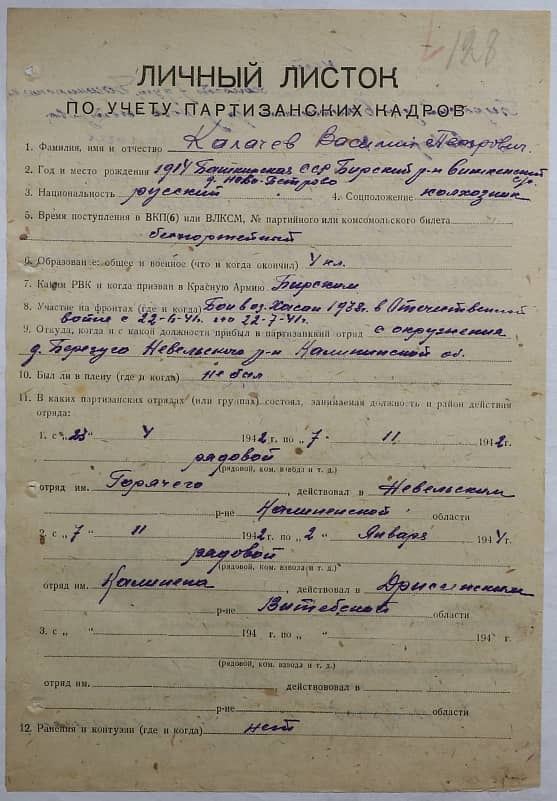 128
ЛИЧНЫЙ ЛИСТОК
ПО УЧЕТУ ПАРТИЗАНСКИХ КАДРОВ
1. Фамилия, имя и отчество Калачев Василий Петрович.
2. Год и место рождения 1914 Башкирская ССР Бирский р-н
с/с
д. Ново-Петрово
3. Национальность русский 4. Соцположение колхозник
5. Время поступления в ВКП(б) или ВЛКСМ, № партийного или комсомольского билета
беспартейный
6. Образование: общее и военное (что и когда окончил) 4 кл.
7. Каким РВК и когда призван в Красную Армию Бирским
8. Участие на фронтах (где и когда) Бои в оз. Хасан 1938 г. в Отечественной
войне с 22-6-41. по 22-7-41 г.
9. Откуда, когда и с какой должности прибыл в партизанский отряд с окружения
д. Невельского р-н Калининской об.
10. Был ли в плену (где и когда) не был
11. В каких партизанских отрядах (или группах) состоял, занимаемая должность и район действия
отряда:
1. с „23“ V 1942 г. по „7“ 11 1942 г.
рядовой
(рядовой, ком. взвода и т. д.)
отряд им. Горячего, действовал в Невельским
р-не Калиненской области
2. с „7“ 11 1942 г. по „2“ Январь 1944 г.
рядовой
(рядовой, ком. взвода и т. д.)
отряд им. Калинена, действовал в Дриссенским
р-не Витебской области
3. с „ “ 194 г. по „ “ 194 г.
(рядовой, ком. взвода и т. д.)
отряд им. действовал в
р-не области
12. Ранения и контузии (где и когда) нет